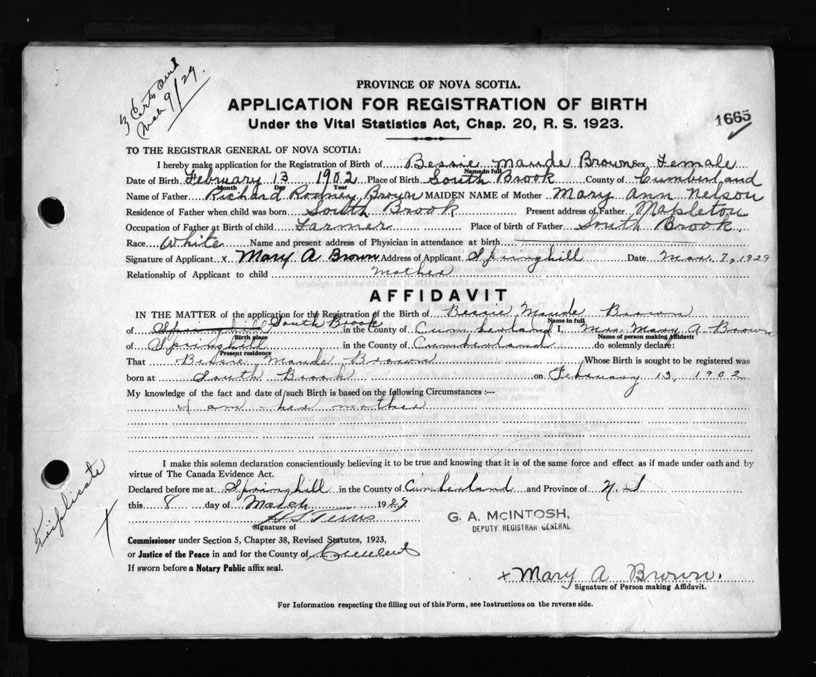 3 Certs
Mch 9/29.
PROVINCE OF NOVA SCOTIA.
APPLICATION FOR REGISTRATION OF BIRTH
1665
Under the Vital Statistics Act, Chap. 20, R. S. 1923.
TO THE REGISTRAR GENERAL OF NOVA SCOTIA:
I hereby make application for the Registration of Birth of Bessie Maude Brown Sex Female
Name in full
Date of Birth February 13 1902 Place of Birth South Brook County of Cumberland
Month Day Year
Name of Father Richard Rodney Brown MAIDEN NAME of Mother Mary Ann Nelson
Residence of Father when child was born South Brook Present address of Father Mapleton
Occupation of Father at Birth of child Farmer Place of birth of Father South Brook
Race White Name and present address of Physician in attendance at birth
Signature of Applicant x Mary A Brown Address of Applicant Springhill Date Mar. 7, 1929
Relationship of Applicant to child Mother
AFFIDAVIT
IN THE MATTER of the application for the Registration of the Birth of Bessie Maude Brown
Name in full
of Springhill South Brook in the County of Cumberland I, Mrs. Mary A Brown
Birth place Name of person making affidavit
of Springhill in the County of Cumberland do solemnly declare:
Present residence
That Bessie Maude Brown Whose Birth is sought to be registered was
born at South Brook on February 13, 1902
My knowledge of the fact and date of such Birth is based on the following Circumstances :—
I am her mother
I make this solemn declaration conscientiously believing it to be true and knowing that it is of the same force and effect as if made under oath and by
virtue of The Canada Evidence Act.
Declared before me at Springhill in the County of Cumberland and Province of N S
this 8 day of March 1929
Signature of
G. A. McINTOSH,
DEPUTY REGISTRAR GENERAL
Commissioner under Section 5, Chapter 38, Revised Statutes, 1923,
or Justice of the Peace in and for the County of
If sworn before a Notary Public affix seal.
x Mary A Brown.
Signature of Person making Affidavit.
For Information respecting the filling out of this Form, see Instructions on the reverse side.
Triplicate